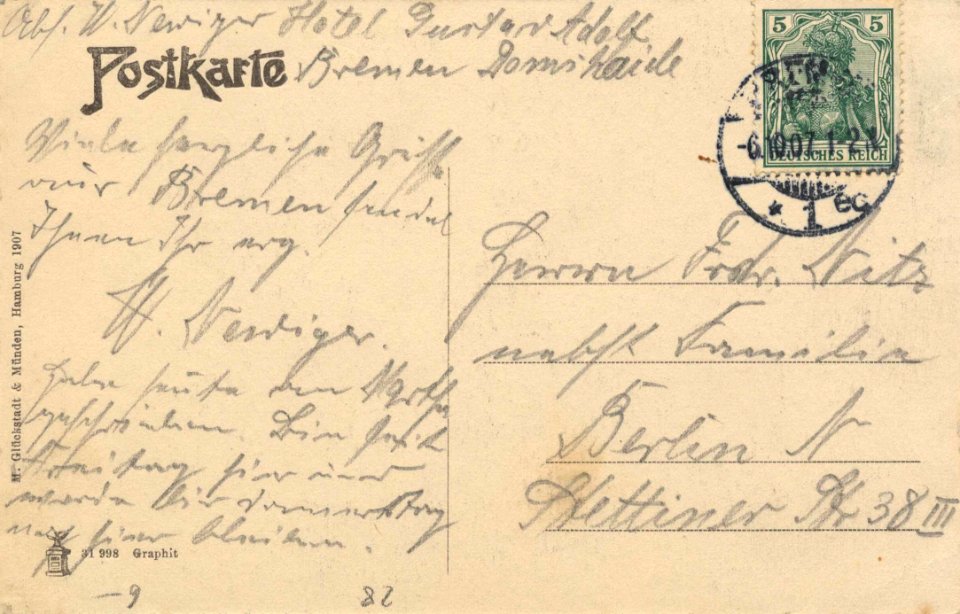 Abs. W. Newiger Hotel Gustav Adolf
Postkarte Bremen Domshaide
Viele herzliche Grüße
aus Bremen sendet
Ihnen Ihr erg.
W. Newiger.
Habe heute an Martha
geschrieben. Bin seit
Freitag hier und
werde bis Donnerstag
noch hier bleiben.
5 5
DEUTSCHES REICH
BREMEN
-6.10.07. 1-2 N.
* 1 ec
Herrn Fr. Nitz
nebst Familie
Berlin N
Stettiner Str 38 III
M. Glückstadt & Münden, Hamburg 1907
31 998 Graphit
-9 82